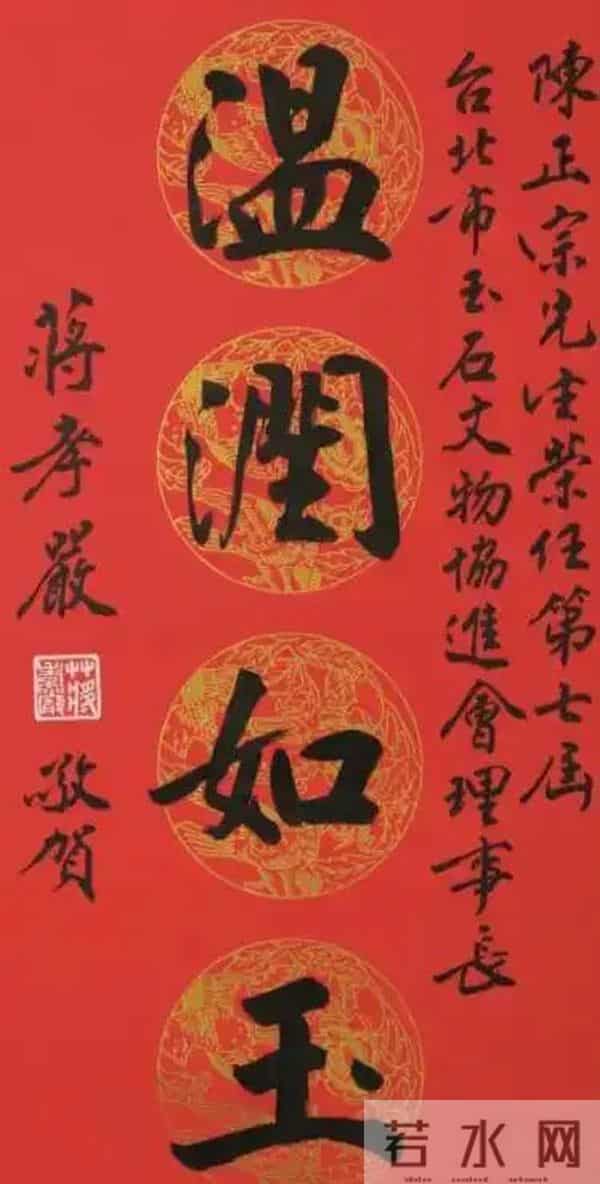 陳正宗先生榮任第七屆
台北市玉石文物協進會理事長
溫潤如玉
蔣孝嚴
敬賀
若水网